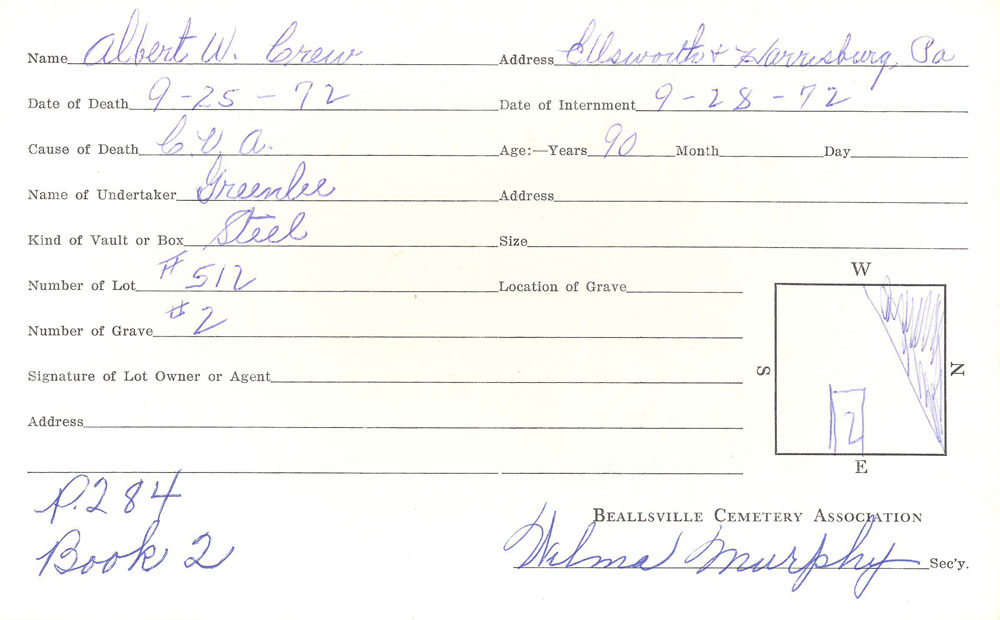 Name Albert W. Crew Address Ellsworth & Harrisburg, Pa
Date of Death 9-25-72 Date of Internment 9-28-72
Cause of Death C.V.A. Age:—Years 90 Month Day
Name of Undertaker Greenlee Address
Kind of Vault or Box Steel Size
Number of Lot #512 Location of Grave
Number of Grave #2
Signature of Lot Owner or Agent
Address
W
S
N
2
E
P.284
Book 2
BEALLSVILLE CEMETERY ASSOCIATION
Wilma Murphy Sec'y.